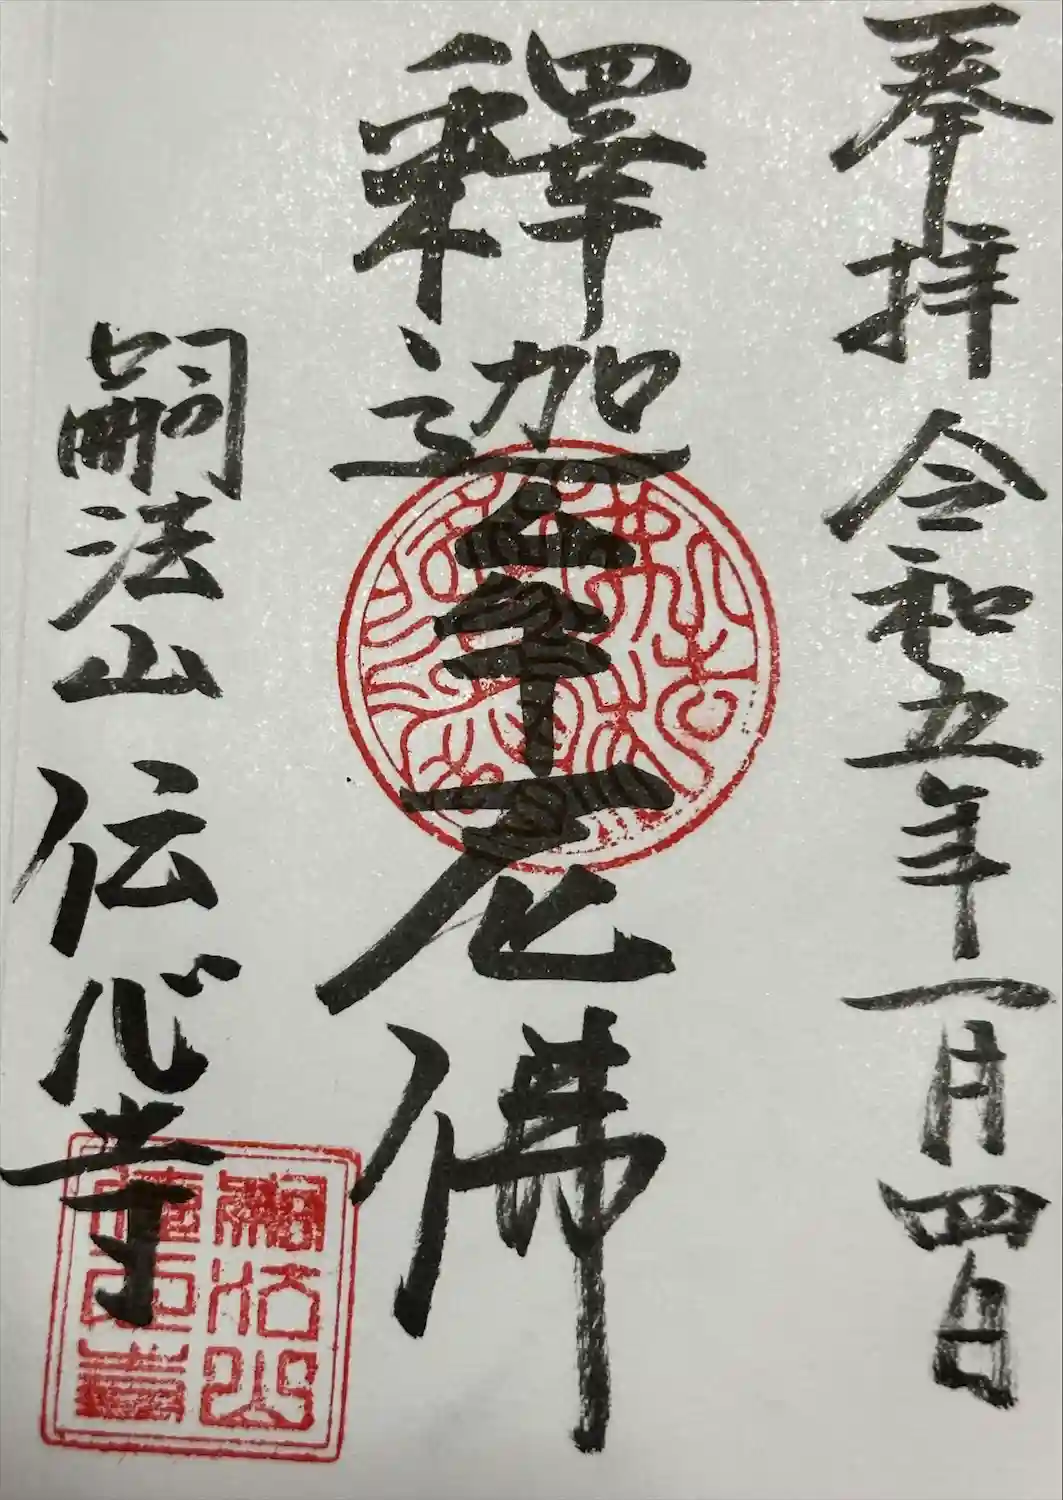 奉拝 令和五年一月四日
釋迦牟尼佛
嗣法山 伝心寺
嗣法山